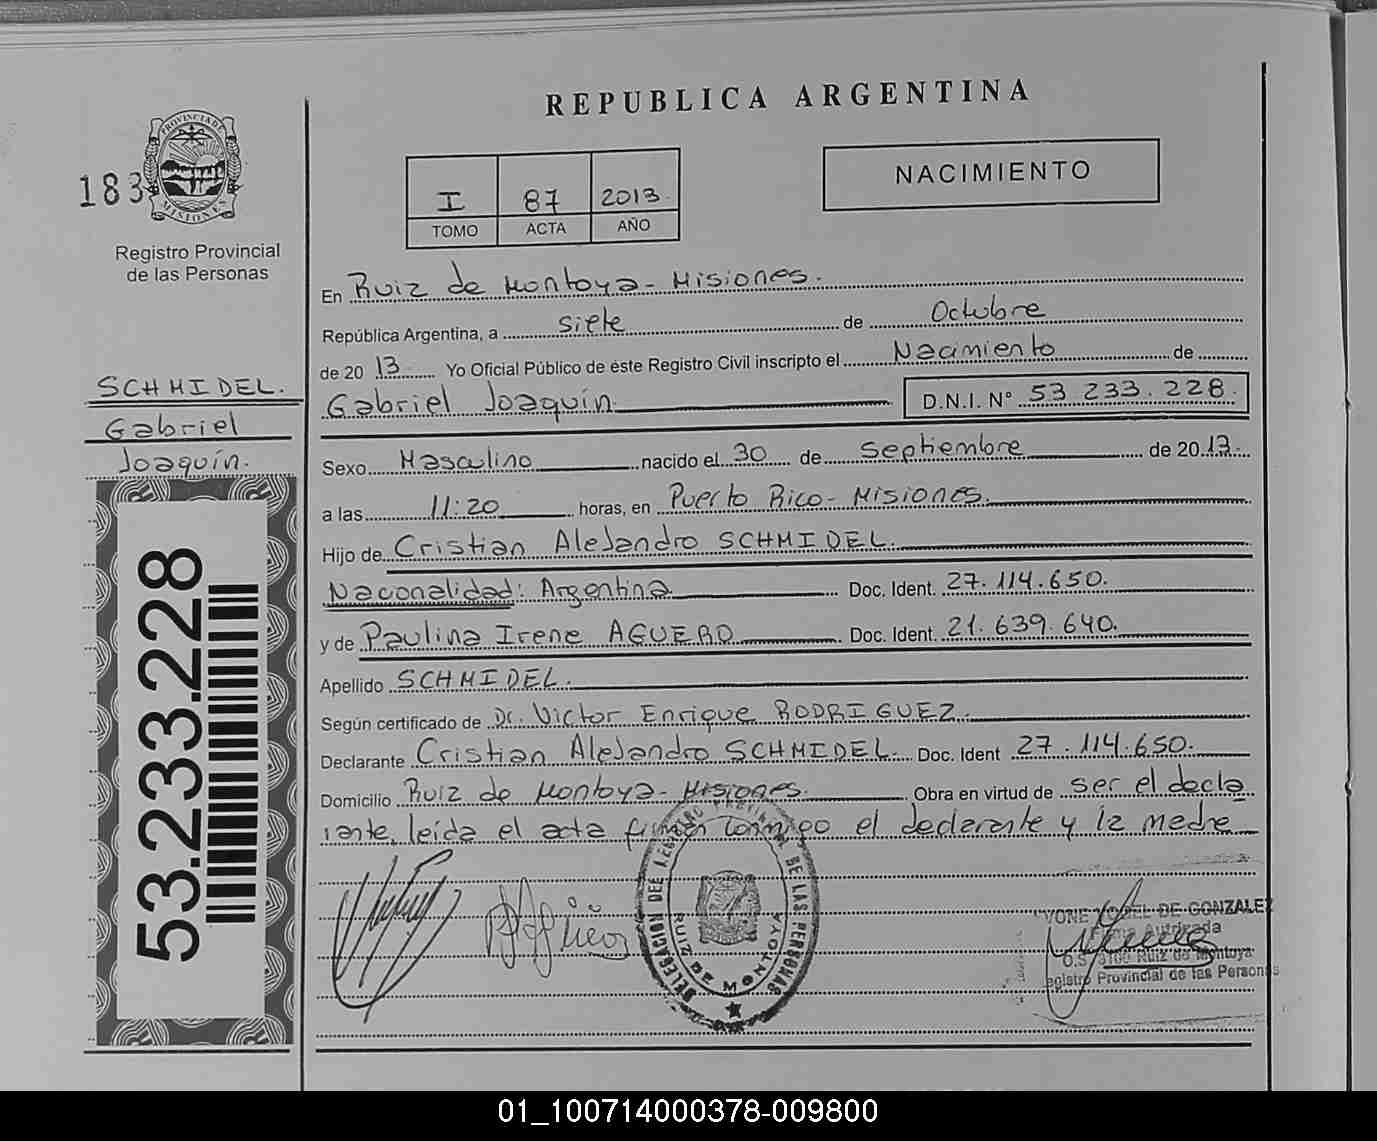 REPUBLICA ARGENTINA
183
PROVINCIA DE
MISIONES
Registro Provincial
de las Personas
I 87 2013
TOMO ACTA AÑO
NACIMIENTO
SCHMIDEL.
Gabriel
Joaquín.
53.233.228
En Ruiz de Montoya - Misiones.
República Argentina, a siete de Octubre
de 20 13 Yo Oficial Público de éste Registro Civil inscripto el Nacimiento de
Gabriel Joaquín D.N.I. N° 53.233.228.
Sexo Masculino nacido el 30 de Septiembre de 20 13.
a las 11:20 horas, en Puerto Rico - Misiones.
Hijo de Cristian Alejandro SCHMIDEL.
Nacionalidad: Argentina Doc. Ident. 27.114.650.
y de Paulina Irene AGUERO Doc. Ident. 21.639.640.
Apellido SCHMIDEL.
Según certificado de Dr. Victor Enrique RODRIGUEZ.
Declarante Cristian Alejandro SCHMIDEL. Doc. Ident 27.114.650.
Domicilio Ruiz de Montoya - Misiones. Obra en virtud de ser el decla
rante, leída el acta firman conmigo el declarante y la madre
DELEGACION DEL REGISTRO PROVINCIAL DE LAS PERSONAS
RUIZ DE MONTOYA
DE GONZALEZ
Firma Autorizada
Ruiz de Montoya
Registro Provincial de las Personas
01_100714000378-009800